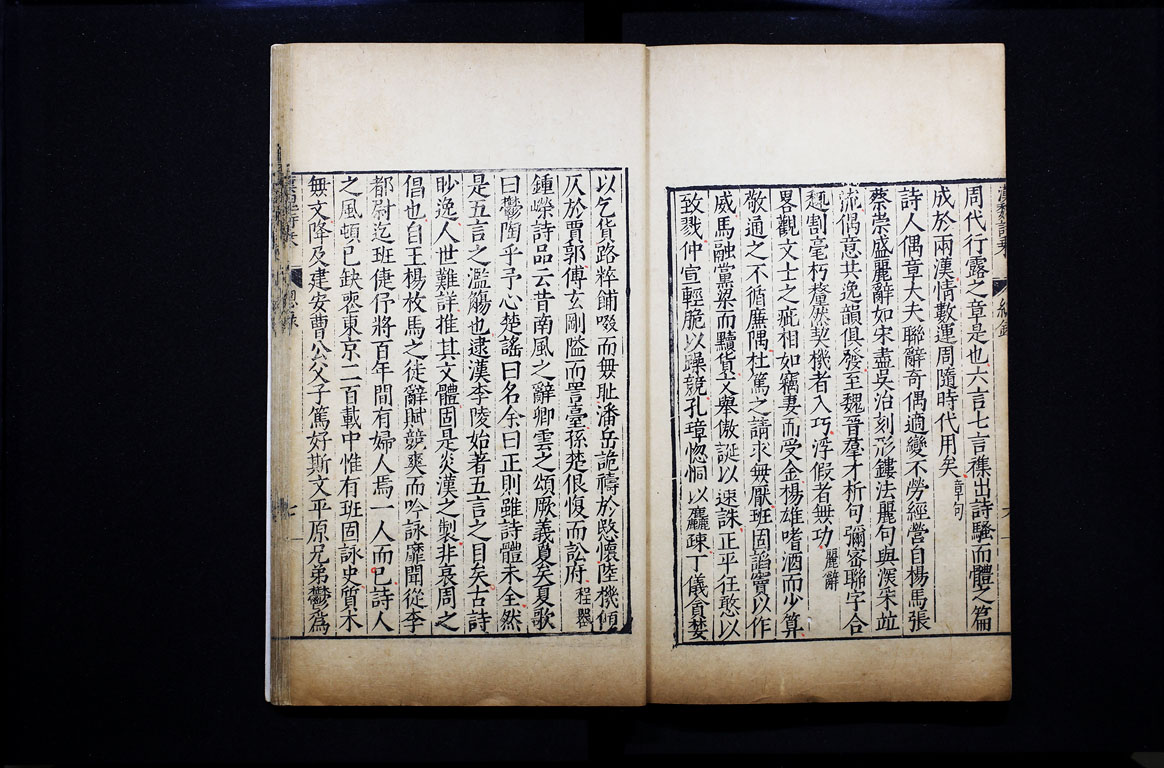 漢魏詩乘 總錄 六
周代行露之章是也六言七言雜出詩騷而體之篇
成於兩漢情數運周隨時代用矣 章句
詩人偶章大夫聯辭奇偶適變不勞經營自楊馬張
蔡崇盛麗辭如宋畫吳冶刻形鏤法麗句與深采並
流偶意共逸韻俱發至魏晉群才析句彌密聯字合
趣割毫析釐然契機者入巧浮假者無功 麗辭
畧觀文士之疵相如竊妻而受金楊雄嗜酒而少算
敬通之不循廉隅杜篤之請求無厭班固諂竇以作
威馬融黨梁而黷貨文舉傲誕以速誅正平狂憨以
致戮仲宣輕脆以躁競孔璋惚恫以麤疎丁儀貪婪
以乞貨路粹餔啜而無耻潘岳詭禱於愍懷陸機傾
仄於賈郭傅玄剛隘而詈臺孫楚佷愎而訟府 程器
鍾嶸詩品云昔南風之辭卿雲之頌厥義夐矣夏歌
曰鬱陶乎予心楚謠曰名余曰正則雖詩體未全然
是五言之濫觴也逮漢李陵始著五言之目矣古詩
眇逸人世難詳推其文體固是炎漢之製非衰周之
倡也自王楊枚馬之徒辭賦競爽而吟詠靡聞從李
都尉迄班倢伃將百年間有婦人焉一人而已詩人
之風頓已缺喪東京二百載中惟有班固詠史質木
無文降及建安曹公父子篤好斯文平原兄弟鬱為
七